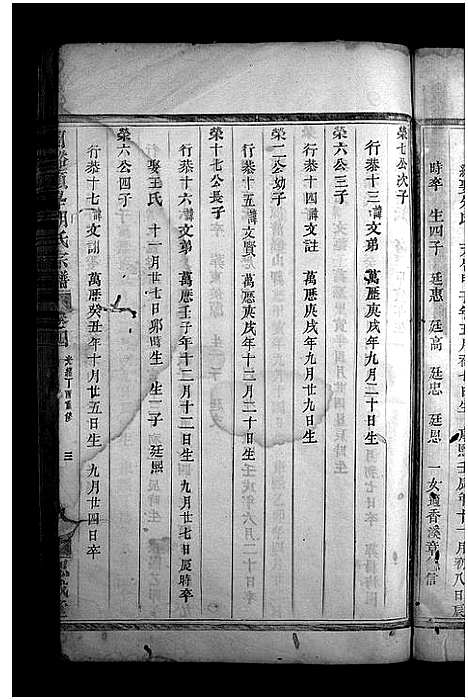 時卒 生四子 廷惠 廷高 廷忠 廷恩 一女適香溪章 信
榮七公次子
行恭十三諱文弟 萬歷庚戌年九月二十日生
榮六公三子
行恭十四諱文註 萬歷庚戌年九月廿九日生
榮二公幼子
行恭十五諱文賢 萬歷庚戌年十二月二十日生 壬戌年六月二十日卒
榮十七公長子
行恭十六諱文弟 萬歷壬子年十二月十二日生 九月廿七日辰時卒
娶王氏 十一月廿七日卯時生 生一子 廷熙
榮六公四子
行恭十七諱文訓 萬歷癸丑年十月廿五日生 九月廿四日卒
胡氏宗譜 卷四 光緒丁酉重修 三